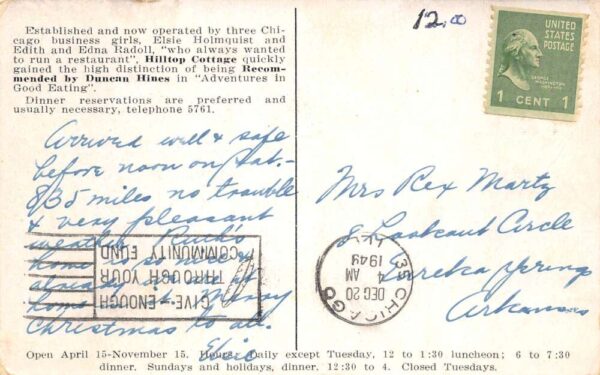 Established and now operated by three Chi-
cago business girls, Elsie Holmquist and
Edith and Edna Radoll, "who always wanted
to run a restaurant", Hilltop Cottage quickly
gained the high distinction of being Recom-
mended by Duncan Hines in "Adventures in
Good Eating".
Dinner reservations are preferred and
usually necessary, telephone 5761.
Arrived well & safe
before noon on Sat-
835 miles no trouble
& very pleasant
weather. Ruck's
home
already
home Merry
Christmas to all.
Elsie
GIVE ENOUGH
THROUGH YOUR
COMMUNITY FUND
12.00
UNITED
STATES
POSTAGE
GEORGE
WASHINGTON
1 CENT 1
Mrs Rex Martz
8 Lookout Circle
Eureka Springs
Arkansas
CHICAGO
DEC 20
AM
1949
Open April 15-November 15. Hours: Daily except Tuesday, 12 to 1:30 luncheon; 6 to 7:30
dinner. Sundays and holidays, dinner. 12:30 to 4. Closed Tuesdays.